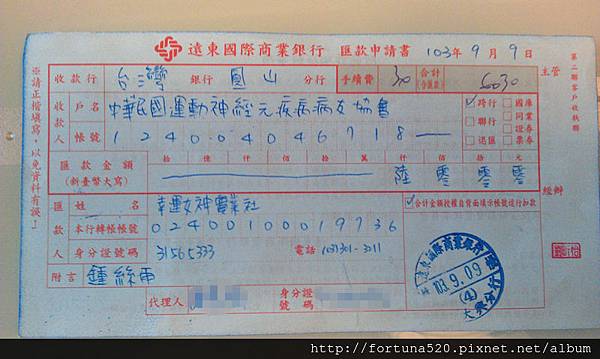 遠東國際商業銀行 匯款申請書 103年9月9日
收款行 台灣 銀行 圓山 分行 手續費 30 合計(含匯款) 6030 主管
收款人 戶名 中華民國運動神經元疾病病友協會
帳號 124004046718
跨行 國庫
聯行 同業
證券
退匯 票券
匯款金額 (新臺幣大寫) 拾 億 仟 佰 拾 萬 仟 佰 拾 元
陸 零 零 零
經辦
匯款人 姓名 幸運女神實業社
合計金額授權自背面填示帳號逕行扣款
本行轉帳帳號 02400100019736
身分證號碼 31565333 電話
附言 鍾絲雨
代理人 身分證號碼
103.9.09
(4)
※請正楷填寫,以免資料有誤!
第二聯客戶收執聯
http://fortuna520.pixnet.net/album